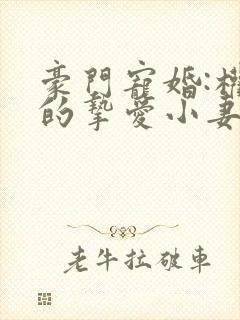 豪門寵婚:權
的摯愛小妻
老牛拉破車